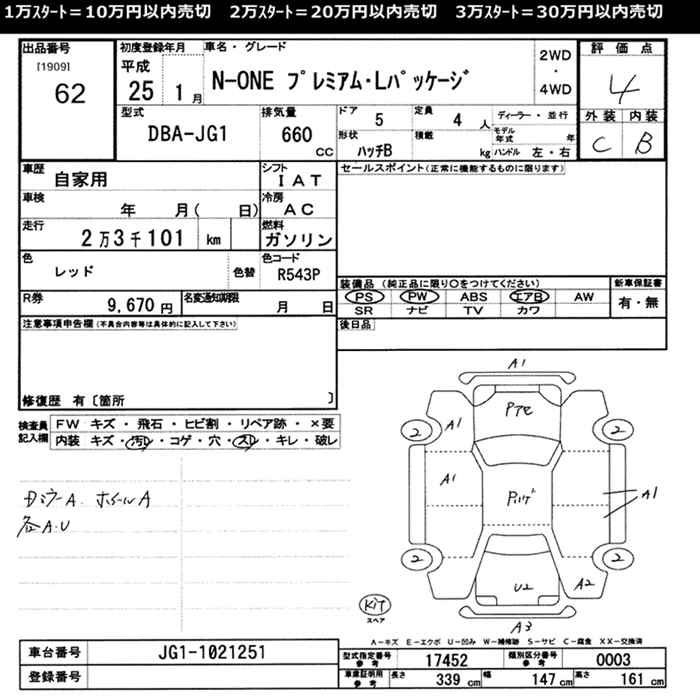 1万スタート＝10万円以内売切　2万スタート＝20万円以内売切　3万スタート＝30万円以内売切
出品番号 初度登録年月 車名・グレード 2WD・4WD 評価点
[1909] 62 平成 25 1月 N-ONE プレミアム・Lパッケージ 4
型式 排気量 ドア 5 定員 4 人 ディーラー・並行 外装 内装
DBA-JG1 660 CC 形状 ハッチB 積載 kg モデル年式 年 ハンドル 左・右 C B
車歴 自家用 シフト IAT セールスポイント(正常に機能するものに限ります)
車検 年 月( 日) 冷房 AC
走行 2万3千101 km 燃料 ガソリン
色 レッド 色替 色コード R543P
装備品 (純正品に限り○をつけてください) 新車保証書
PS PW ABS エアB AW 有・無
SR ナビ TV カワ
R券 9,670 円 名変通知期限 月 日
後日品
注意事項申告欄(不具合内容等は具体的に記入して下さい)
修復歴 有〔箇所 〕
検査員記入欄 FW キズ・飛石・ヒビ割・リペア跡・×要
内装 キズ・汚レ・コゲ・穴・スレ・キレ・破レ
A1
A1
2
2
A1
A1
2
2
U2
A2
A3
各A.U
KIT
スペア
A－キズ E－エクボ U－凹み W－補修跡 S－サビ C－腐食 XX－交換済
車台番号 JG1-1021251
登録番号
型式指定番号 参考 17452 類別区分番号 参考 0003
車庫証明用 参考 長さ 339 cm 幅 147 cm 高さ 161 cm